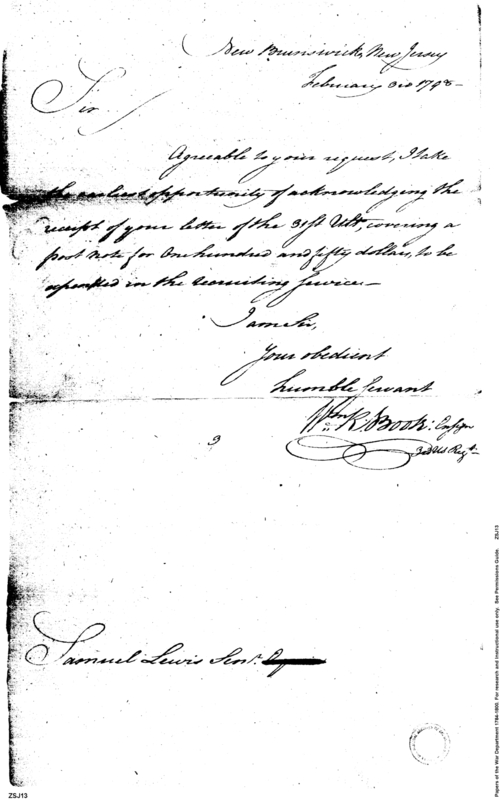 New Brunswick, New Jersey
February 3rd 1798 -
Sir
Agreeable to your request, I take
the earliest opportunity of acknowledging the
receipt of your letter of the 31st Ulto, covering a
post note for One hundred and fifty dollars, to be
expended in the recruiting service. -
I am Sir,
Your obedient
humble Servant
Wm R. Book: Ensign
3rd US Regt
3
Samuel Lewis Senr.
ZSJ13
Papers of the War Department 1784-1800 For research and instructional use only. See Permissions Guide. ZSJ13